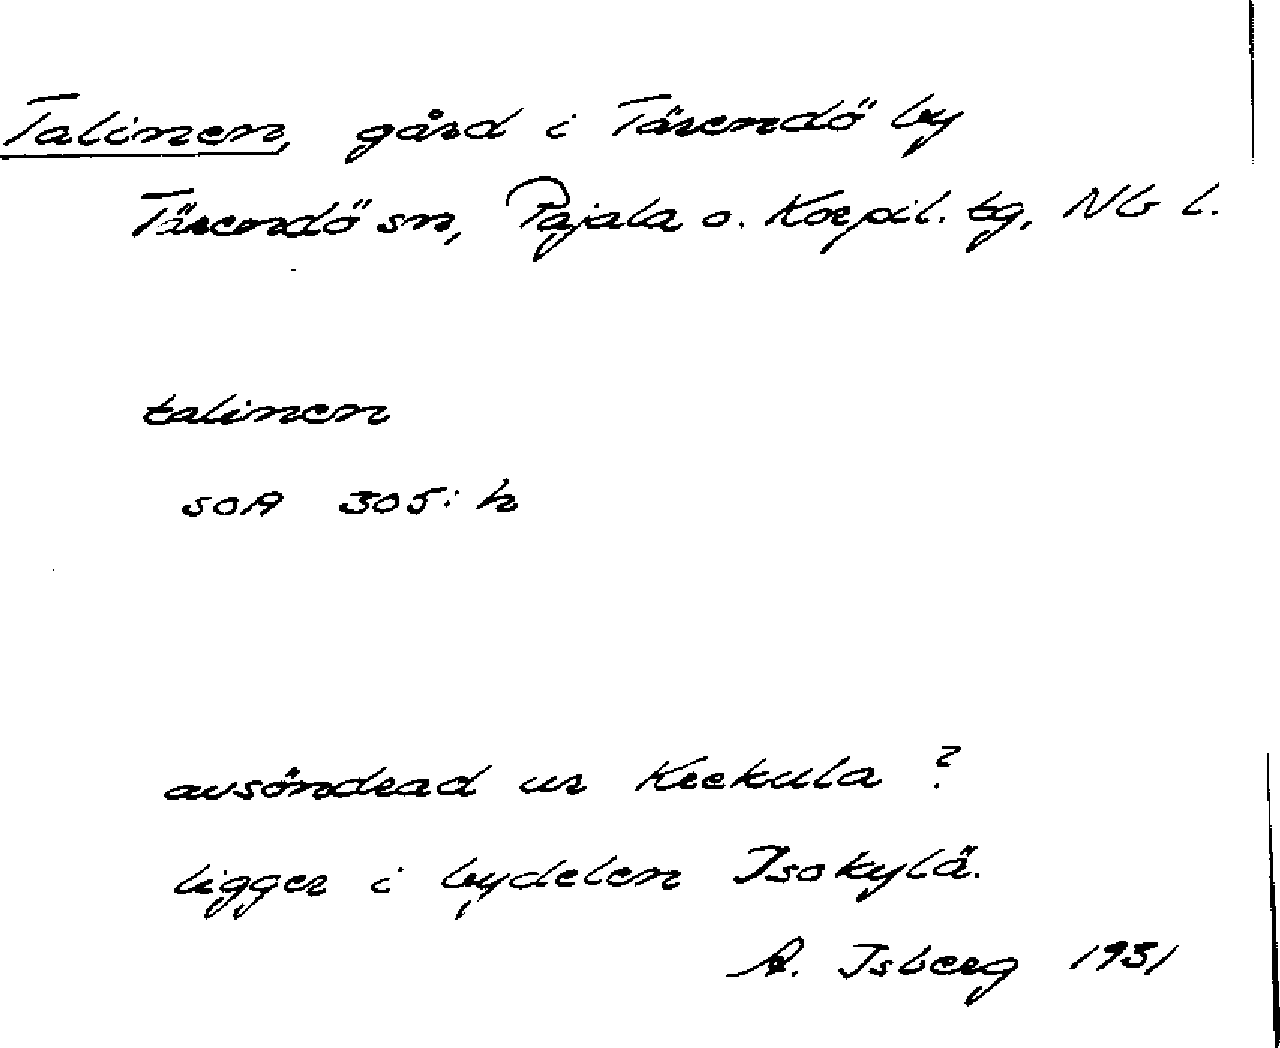 Talinen, gård i Tärendö by
Tärendö sn, Pajala o. Korpil. tg, Nb l.
talinen
SOA 305: h
avsöndrad ur Keekula ?
ligger i bydelen Isokylä.
A. Isberg 1931